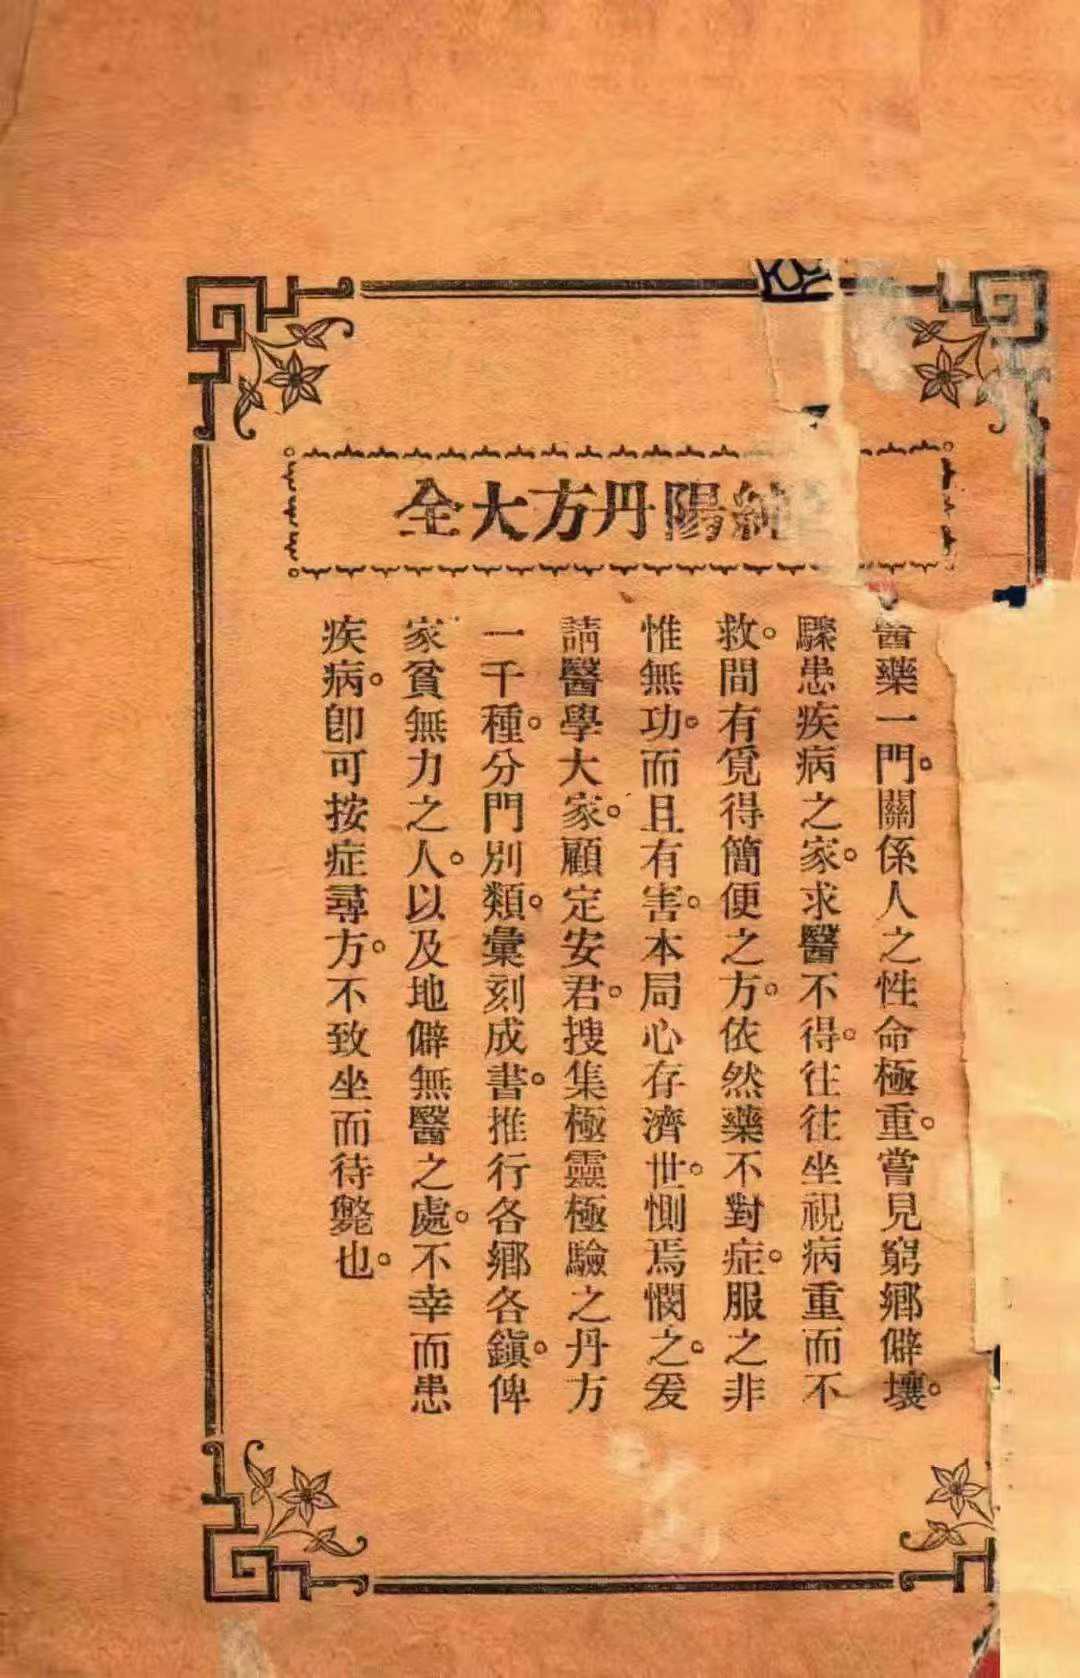 純陽丹方大全
醫藥一門。關係人之性命極重。嘗見窮鄉僻壤。
驟患疾病之家。求醫不得。往往坐視病重而不
救。間有覓得簡便之方。依然藥不對症。服之非
惟無功。而且有害。本局心存濟世。惻焉憫之。爰
請醫學大家。顧定安君。搜集極靈極驗之丹方
一千種。分門別類。彙刻成書。推行各鄉各鎭。俾
家貧無力之人。以及地僻無醫之處。不幸而患
疾病。卽可按症尋方。不致坐而待斃也。